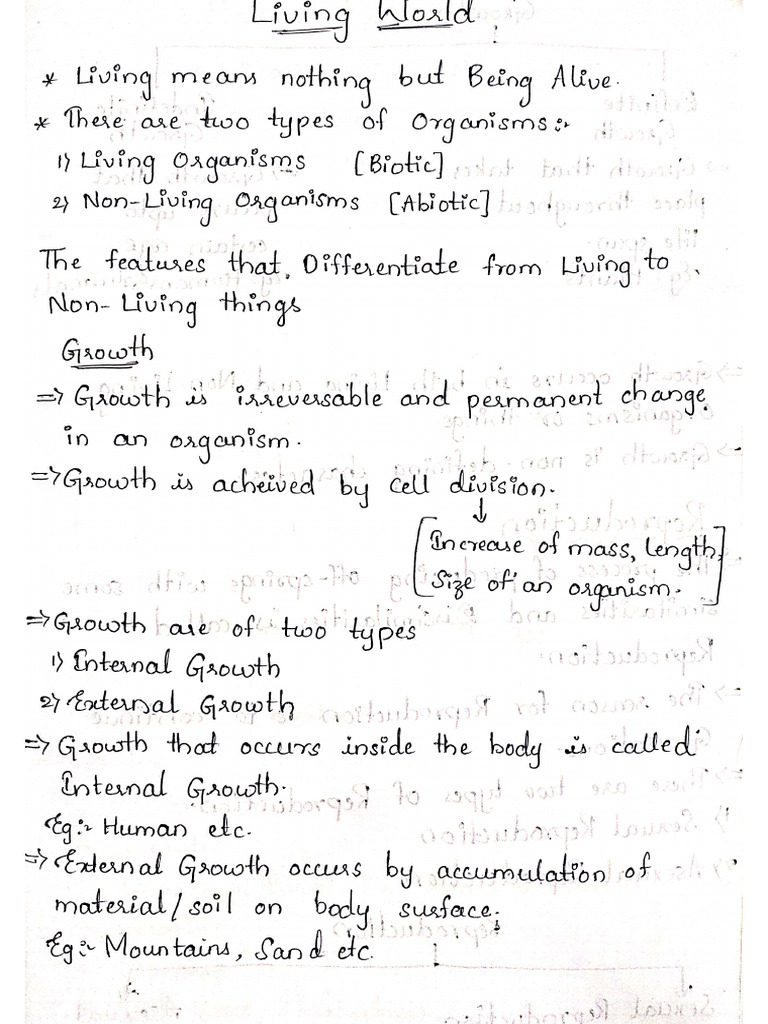 Living World
* Living means nothing but Being Alive.
* There are two types of Organisms:-
1) Living Organisms [Biotic]
2) Non-Living Organisms [Abiotic]
The features that Differentiate from Living to
Non-Living things
Growth
=> Growth is irreversable and permanent change
in an organism.
=> Growth is acheived by cell division.
↓
[Increase of mass, length,
Size of an organism.]
=> Growth are of two types
1) Internal Growth
2) External Growth
=> Growth that occurs inside the body is called
Internal Growth.
Eg:- Human etc.
=> External Growth occurs by accumulation of
material/soil on body surface.
Eg:- Mountains, Sand etc.